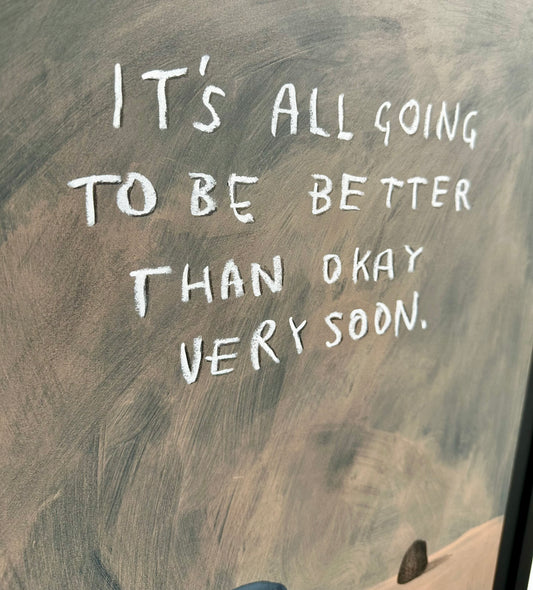 IT'S ALL GOING
TO BE BETTER
THAN OKAY
VERY SOON.